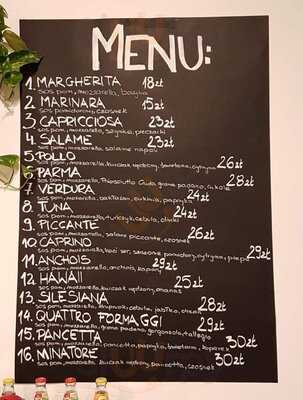 MENU:
1. MARGHERITA 18zł
sos pom, mozzarella, bazylia
2. MARINARA 15zł
sos pomidorowy, czosnek
3. CAPRICCIOSA 23zł
sos pom, mozzarella, szynka, pieczarki
4. SALAME 23zł
sos pom, mozzarella, salame napoli
5. POLLO 26zł
sos pom, mozzarella, kurczak wędzony,
6. PARMA 28zł
sos pom, mozzarella, Prosciutto Crudo, grana padano, rukola
7. VERDURA 24zł
sos pom, mozzarella, bakłażan, cukinia, papryka
8. TUNA 24zł
sos pom, mozzarella, tuńczyk, cebula, oliwki
9. PICCANTE 26zł
sos pom, mozzarella, salame piccante, czosnek
10. CAPRINO 29zł
sos pom, mozzarella, kozi ser, suszone pomidory, cytryna,
11. ANCHOIS 29zł
sos pom, mozzarella, anchois, kapary
12. HAWAII 25zł
sos pom, mozzarella, kurczak wędzony, ananas
13. SILESIANA 28zł
sos pom, mozzarella, krupniok, cebula, jabłko,
14. QUATTRO FORMAGGI 29zł
sos pom, mozzarella, grana padano, gorgonzola, taleggio
15. PANCETTA 30zł
sos pom, mozzarella, pancetta, papryka,
16. MINATORE 30zł
sos pom, mozzarella, kurczak wędzony, pancetta, czosnek